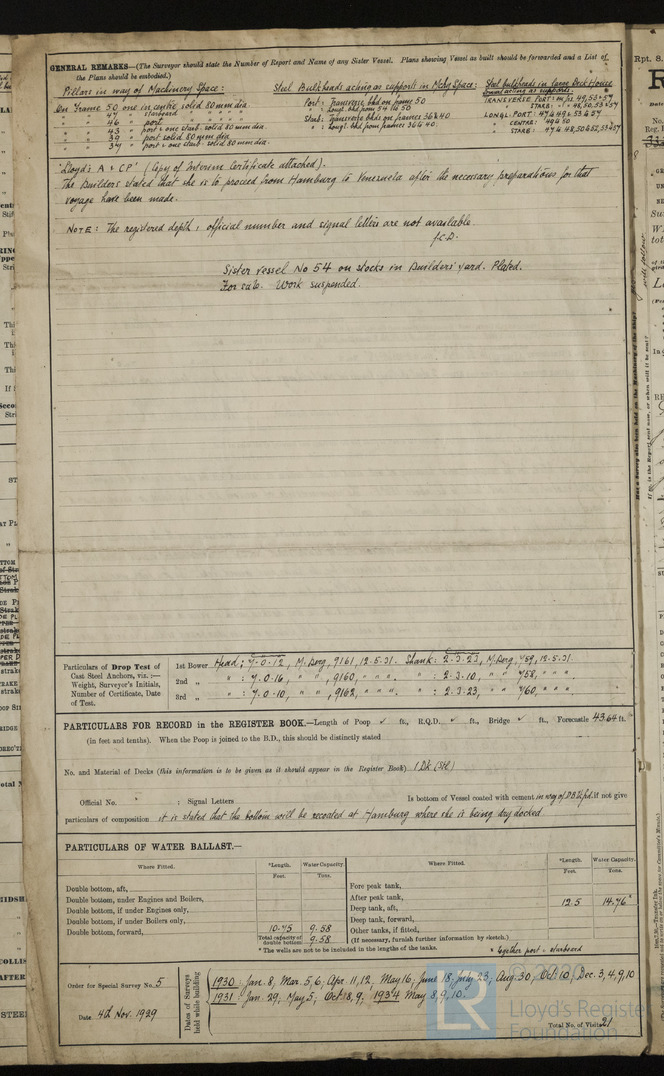 GENERAL REMARKS—(The Surveyor should state the Number of Report and Name of any Sister Vessel. Plans showing Vessel as built should be forwarded and a List of
the Plans should be embodied.)
Pillars in way of Machinery Space:
On Frame 50 one in centre, solid 80 mm dia
" " 47 " starboard " " " "
" " 46 " port " " " "
" " 43 " port & one starb. solid 80 mm dia.
" " 39 " port solid 80 mm dia.
" " 34 " port & one starb. solid 80 mm dia.
Steel Bulkheads acting as supports in Mchy Space:
Port: Transverse bhd on frame 50
" : Longl. bhd from 54 to 50
Starb: Transverse bhds on frames 36 & 40
" : Longl. bhd from frames 36 & 40.
Steel bulkheads in large Deck House
acting as supports.
TRANSVERSE PORT: on frs. 49, 53 & 57
STARB:
LONGL. PORT: 47 & 49 & 53 & 57
" CENTRE: 49 & 50
" STARB: 47 & 48, 50 & 52, 53 & 57
Lloyd's A & CP (Copy of Interim Certificate attached).
The Builders stated that she is to proceed from Hamburg to Venezuela after the necessary preparations for that
voyage have been made.
NOTE: The registered depth, official number and signal letters are not available
Sister vessel No 54 on stocks in Builders' yard. Plated.
For sale. Work suspended.
Particulars of Drop Test of
Cast Steel Anchors, viz.:—
Weight, Surveyor's Initials,
Number of Certificate, Date
of Test.
1st Bower Head: 7.0.12, M. Berg, 9161, 12.5.31. Shank: 2.3.23, M. Berg, 759, 12.5.31.
2nd " " : 7.0.16, " " , 9160, " " " " : 2.3.10, " " 758, " " "
3rd " " : 7.0.10, " " , 9162, " " " " : 2.3.23, " " 760, " " "
PARTICULARS FOR RECORD in the REGISTER BOOK.—Length of Poop ✓ ft., R.Q.D. ✓ ft., Bridge ✓ ft., Forecastle 43.64 ft.
(in feet and tenths). When the Poop is joined to the B.D., this should be distinctly stated
No. and Material of Decks (this information is to be given as it should appear in the Register Book) 1 Dk (Stl)
Official No. ; Signal Letters Is bottom of Vessel coated with cement in way of D.B. if not give
particulars of composition it is stated that the bottom will be recoated at Hamburg where she is being dry docked
PARTICULARS OF WATER BALLAST.—
Where Fitted. *Length. Water Capacity. Where Fitted. *Length. Water Capacity.
Feet. Tons. Feet. Tons.
Double bottom, aft, Fore peak tank,
Double bottom, under Engines and Boilers, After peak tank,
Double bottom, if under Engines only, Deep tank, aft, 12.5 14.76*
Double bottom, if under Boilers only, Deep tank, forward,
Double bottom, forward, 10.75 9.58 Other tanks, if fitted,
Total capacity of double bottom 9.58 (If necessary, furnish further information by sketch.)
* The wells are not to be included in the lengths of the tanks. * together port & starboard
Order for Special Survey No. 5
Date 4th Nov. 1929
Dates of Surveys
held while building
1930: Jan. 8, Mar. 5, 6, Apr. 11, 12, May 16, June 18, July 23, Aug. 30, Oct. 10, Dec. 3, 4, 9, 10
1931: Jan. 29, May 5, Oct. 8, 9, 1934 May 8, 9, 10.
Total No. of Visits 21
LR
Lloyd's Register
Foundation
Rpt. 8.